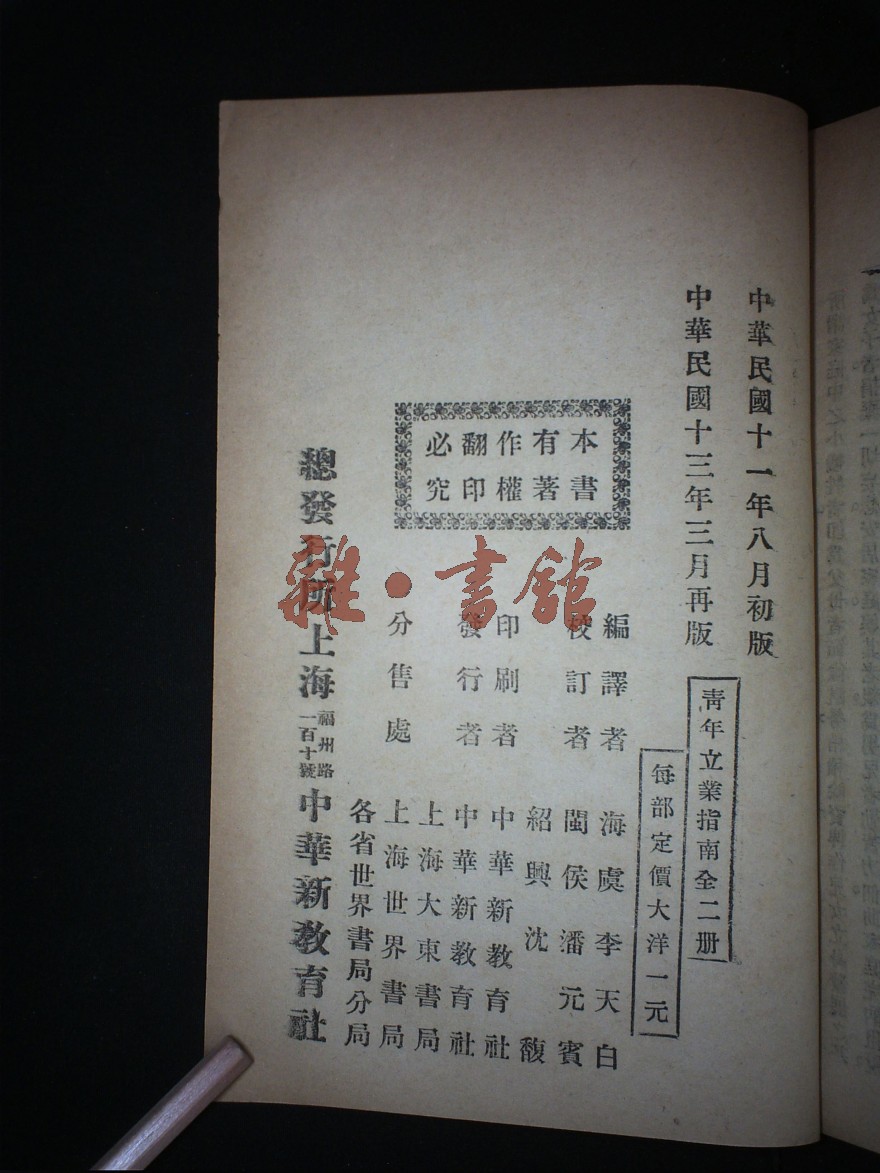 中華民國十一年八月初版
中華民國十三年三月再版
青年立業指南全二册
每部定價大洋一元
本書
有著
作權
翻印
必究
編譯者 海虞李天白
校訂者 閩侯潘元賓
紹興沈 馥
印刷者 中華新教育社
發行者 中華新教育社
上海大東書局
分售處 上海世界書局
各省世界書局分局
總發行所上海福州路一百十號中華新教育社
雜·書館